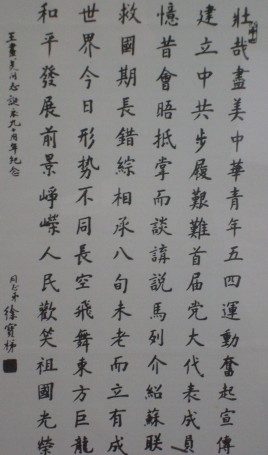 壯哉盡美中華青年五四運動奮起宣傳
建立中共步履艱難首屆党大代表成員
憶昔會晤抵掌而談講説馬列介紹蘇联
救國期長錯綜相承八旬未老而立有成
世界今日形势不同長空飛舞東方巨龍
和平發展前景崢嶸人民歡笑祖國光榮
王盡美同志誕辰九十周年紀念
徐寶梯